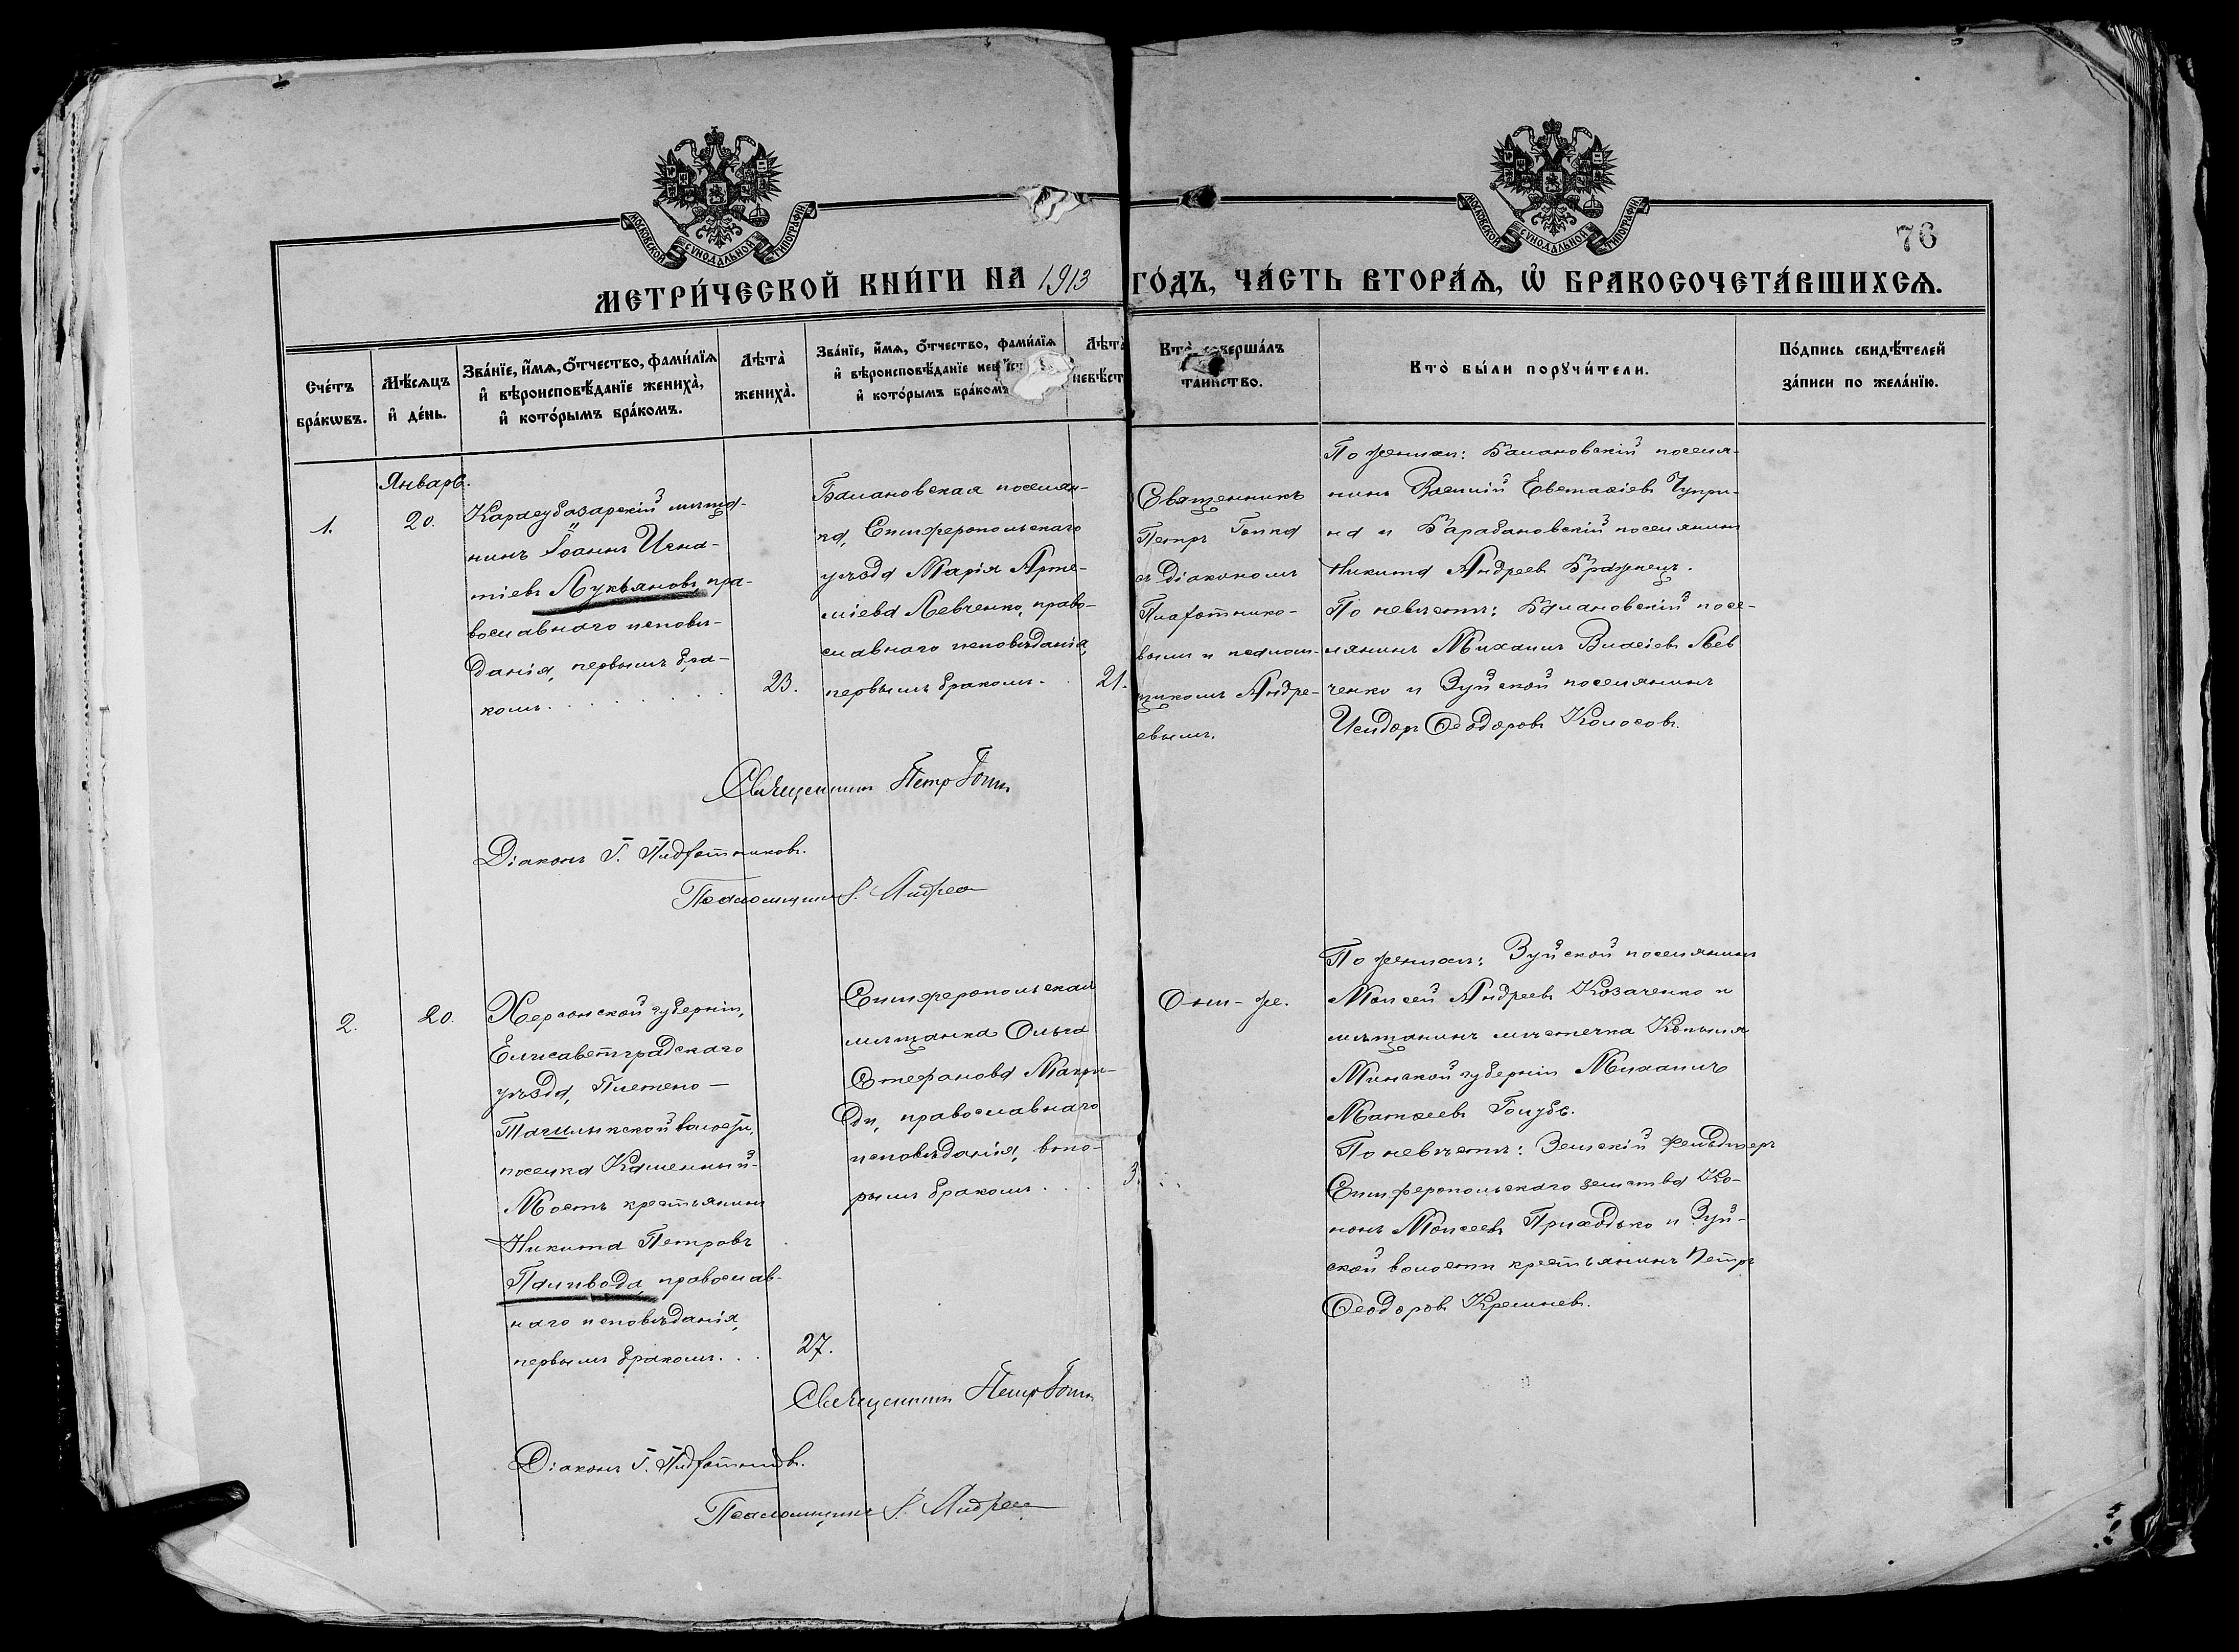 МОСКОВСКОЙ СѴНОДАЛЬНОЙ ТИПОГРАФІИ
МОСКОВСКОЙ СѴНОДАЛЬНОЙ ТИПОГРАФІИ
76
МЕТРИ́ЧЕСКОЙ КНИ́ГИ НА 1913 ГО́ДЪ, ЧА́СТЬ ВТОРА́Ѧ, Ѡ҆ БРАКОСОЧЕТА́ВШИХСѦ.
Сче́тъ
бра́кѡвъ.
Мѣ́сяцъ
и҆ де́нь.
Зва́нїе, и҆́мѧ, о҆́тчество, фами́лїѧ
и҆ вѣроисповѣ́данїе жениха̀,
и҆ кото́рымъ бра́комъ.
Лѣта̀
жениха̀.
Зва́нїе, и҆́мѧ, о҆́тчество, фами́лїѧ
и҆ вѣроисповѣ́данїе
и҆ кото́рымъ бра́комъ
Лѣта̀
невѣст
Кто̀ соверша́лъ
таинство.
Кто̀ бы́ли порꙋчи́тели.
По́дпись свидѣ́телей
за́писи по жела́нїю.
1.
Январь.
20.
Карасубазарскій мѣща-
нинъ Іоаннъ Игна-
тіевъ Лукьяновъ, пра-
вославнаго исповѣ-
данія, первымъ бра-
комъ.
23.
Балановская поселян-
ка, Симферопольскаго
уѣзда Марія Арте-
міева Левченко, право-
славнаго исповѣданія,
первымъ бракомъ.
21.
Священникъ
Петръ
съ діакономъ
вымъ и псалом-
щикомъ Андре-
евымъ.
По женихѣ: Балановскій поселя-
нинъ Василій Евстафіевъ Чупри-
на и Барабановскій поселянинъ
Никита Андреевъ Бражнецъ.
По невѣстѣ: Балановскій посе-
лянинъ Михаилъ Власіевъ Лев
ченко и Зуйской поселянинъ
Исидоръ Ѳеодоровъ Колосовъ.
Священникъ Петръ
Діаконъ Г.
Псаломщикъ
2.
20.
Херсонской губерніи,
Елисаветградскаго
уѣзда, Плетено-
Ташлыкской волости,
поселка Каменный-
Мостъ крестьянинъ
Никита Петровъ
Паливода, православ-
наго исповѣданія,
первымъ бракомъ.
27.
Симферопольская
мѣщанка Ольга
Стефанова
православнаго
исповѣданія, вто-
рымъ бракомъ.
3
Они-же.
По женихѣ: Зуйской поселянинъ
Моисей Андреевъ Козаченко и
мѣщанинъ мѣстечка Копыля
Минской губерніи Михаилъ
Матѳеевъ Голубъ.
По невѣстѣ: Земскій фельдшеръ
Симферопольскаго земства Ко-
нонъ Моисеевъ Приходько и Зуй-
ской волости крестьянинъ Петръ
Ѳеодоровъ Кремневъ.
Священникъ Петръ
Діаконъ Г.
Псаломщикъ